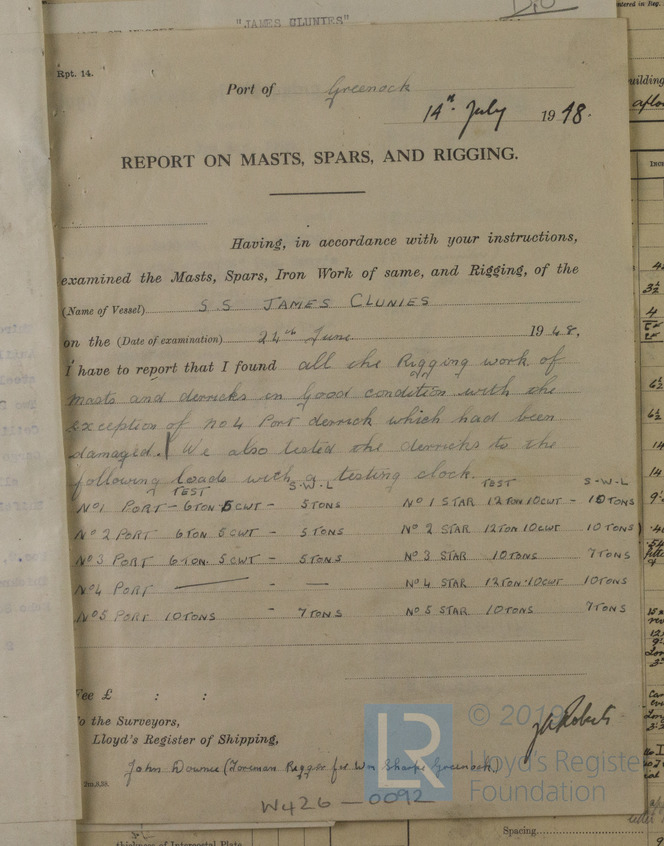 "JAMES CLUNIES"
Rpt. 14.
Port of Greenock
14th July 1948.
REPORT ON MASTS, SPARS, AND RIGGING.
Having, in accordance with your instructions,
examined the Masts, Spars, Iron Work of same, and Rigging, of the
(Name of Vessel) SS JAMES CLUNIES
on the (Date of examination) 24th June 1948,
I have to report that I found all the Rigging work of
masts and derricks in Good condition with the
exception of No 4 Port derrick which had been
damaged. We also tested the derricks to the
following loads with a testing clock.
TEST S-W-L TEST S-W-L
No 1 PORT - 6 TON 5 CWT - 5 TONS No 1 STAR 12 TON 10 CWT - 10 TONS
No 2 PORT 6 TON 5 CWT - 5 TONS No 2 STAR 12 TON 10 CWT 10 TONS
No 3 PORT 6 TON. 5 CWT - 5 TONS No 3 STAR 10 TONS 7 TONS
No 4 PORT —— - — No 4 STAR 12 TON-10 CWT 10 TONS
No 5 PORT 10 TONS - 7 TONS No 5 STAR 10 TONS 7 TONS
Fee £ : :
To the Surveyors,
Lloyd's Register of Shipping,
John Downie (Foreman Rigger for Wm Sharpe Greenock)
W426-0092
LR
Lloyd's Register
Foundation
Spacing
thickness of Intercostal Plate